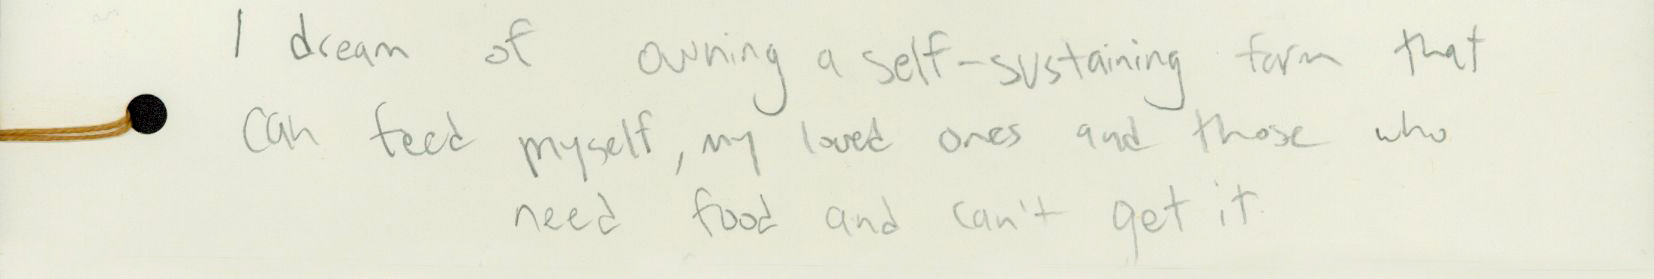 I dream of owning a self-sustaining farm that
can feed myself, my loved ones and those who
need food and can't get it.